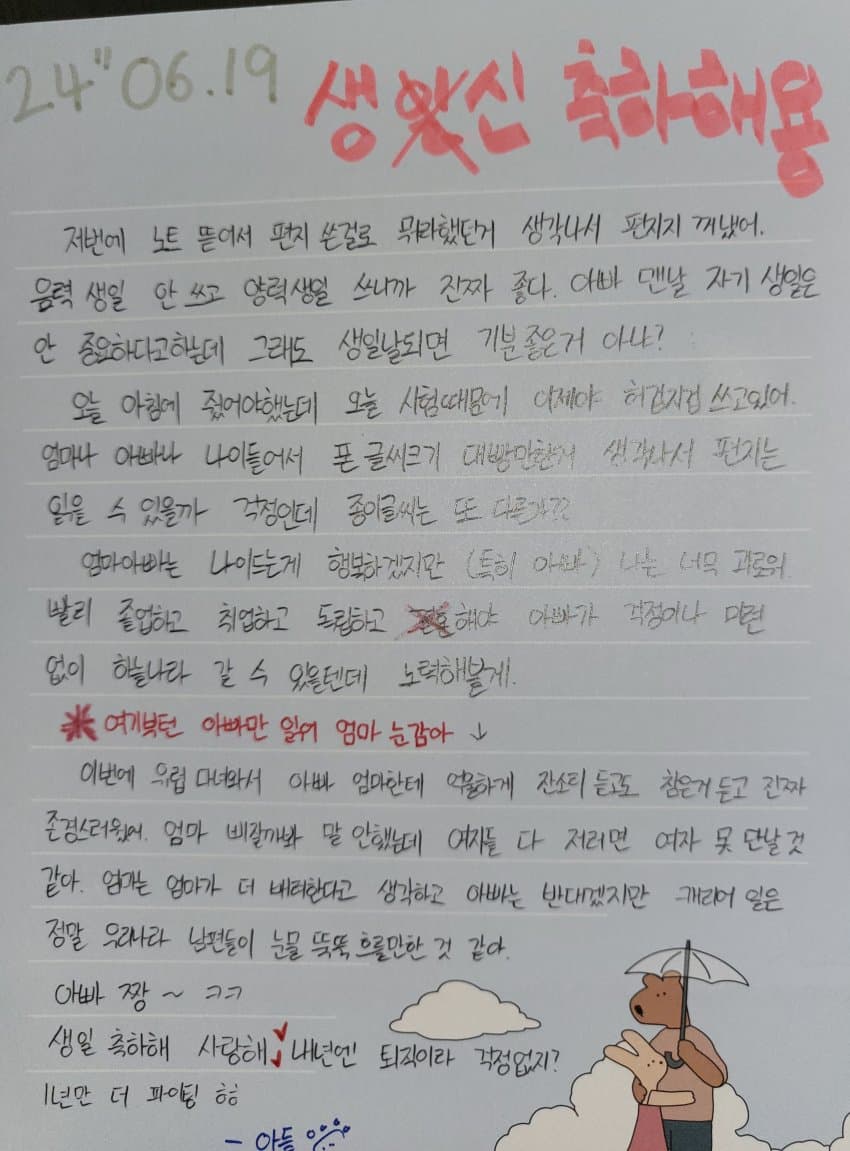 24" 06.19
생신 축하해용
저번에 노트 뜯어서 편지 쓴걸로 뭐라했던거 생각나서 편지지 꺼냈어.
음력 생일 안 쓰고 양력생일 쓰니까 진짜 좋다. 아빠 맨날 자기 생일은
안 중요하다고하는데 그래도 생일날되면 기분좋은거 아냐?
오늘 아침에 줬어야했는데 오늘 시험때문에 이제야 허겁지겁 쓰고있어.
엄마나 아빠나 나이들어서 폰 글씨크기 대빵만한거 생각나서 편지는
읽을 수 있을까 걱정인데 종이글씨는 또 다른가??
엄마아빠는 나이드는게 행복하겠지만 (특히 아빠) 나는 너무 괴로워
빨리 졸업하고 취업하고 독립하고 결혼해야 아빠가 걱정이나 미련
없이 하늘나라 갈 수 있을텐데 노력해볼게.
* 여기부턴 아빠만 읽어 엄마 눈감아 ↓
이번에 유럽 다녀와서 아빠 엄마한테 억울하게 잔소리 듣고도 참은거 듣고 진짜
존경스러웠어. 엄마 삐질까봐 말 안했는데 여자들 다 저러면 여자 못 만날 것
같아. 엄마는 엄마가 더 배려한다고 생각하고 아빠는 반대겠지만 캐리어 일은
정말 우리나라 남편들이 눈물 뚝뚝 흐를만한 것 같아.
아빠 짱 ~ ㅋㅋ
생일 축하해 사랑해 내년엔 퇴직이라 걱정없지?
1년만 더 파이팅 ㅎㅎ
- 아들